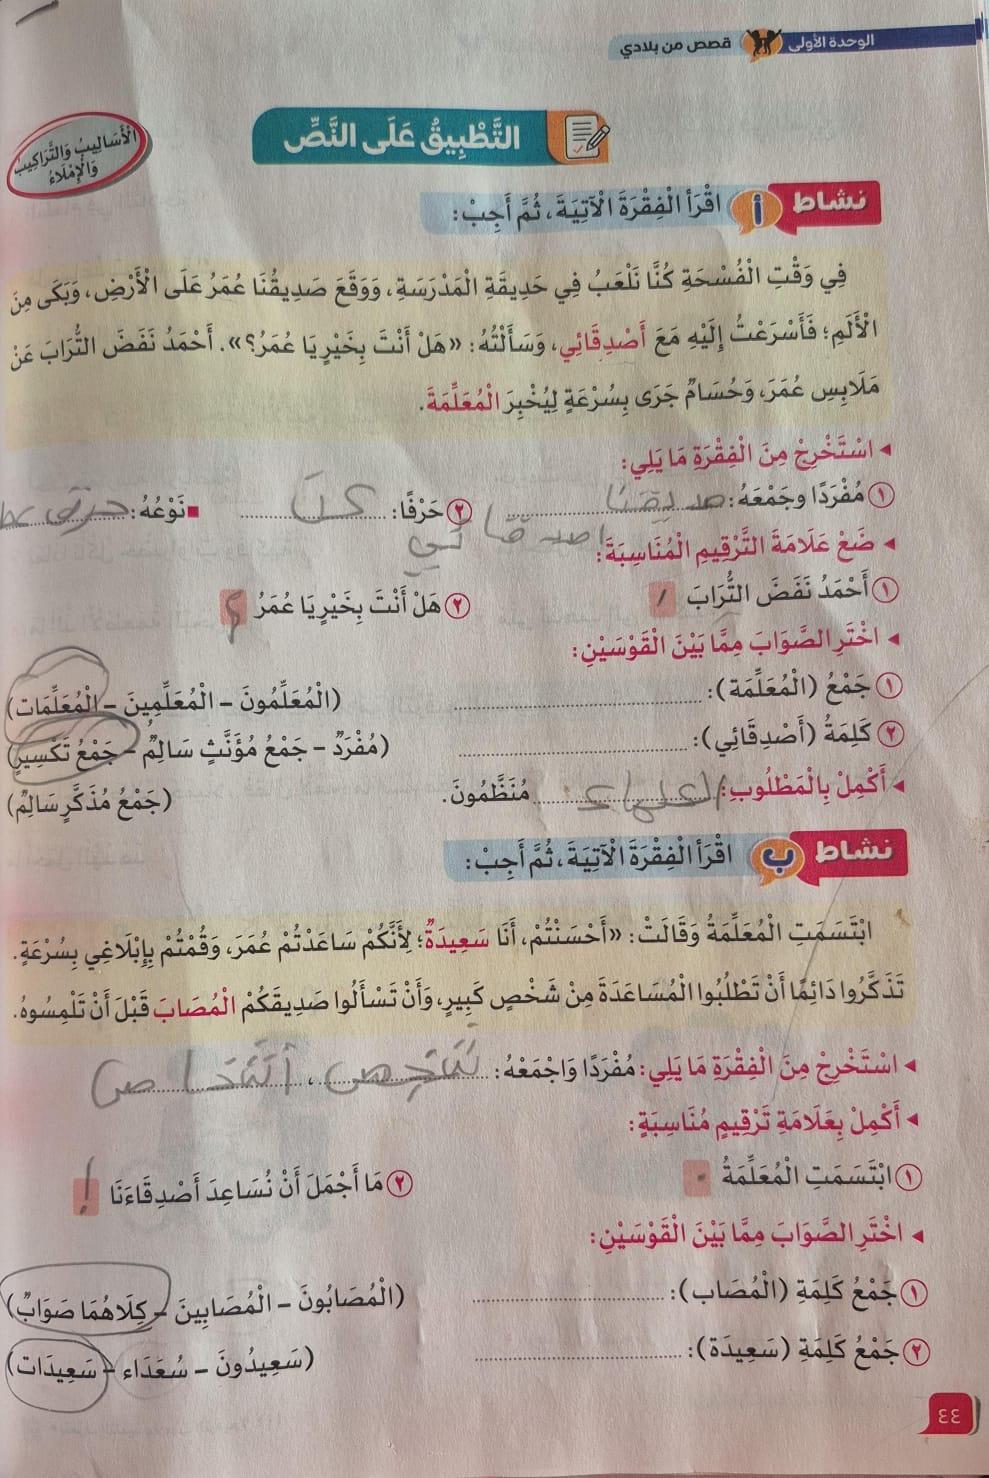 الوحدة الأولى قصص من بلادي
التَّطْبِيقُ عَلَى النَّصِّ
الْأَسَالِيبُ وَالتَّرَاكِيبُ
وَالْإِمْلَاءُ
نشاط أ اقْرَأِ الْفِقْرَةَ الْآتِيَةَ، ثُمَّ أَجِبْ:
فِي وَقْتِ الْفُسْحَةِ كُنَّا نَلْعَبُ فِي حَدِيقَةِ الْمَدْرَسَةِ، وَوَقَعَ صَدِيقُنَا عُمَرُ عَلَى الْأَرْضِ، وَبَكَى مِنَ
الْأَلَمِ؛ فَأَسْرَعْتُ إِلَيْهِ مَعَ أَصْدِقَائِي، وَسَأَلْتُهُ: «هَلْ أَنْتَ بِخَيْرٍ يَا عُمَرُ؟». أَحْمَدُ نَفَضَ التُّرَابَ عَنْ
مَلَابِسِ عُمَرَ، وَحُسَامٌ جَرَى بِسُرْعَةٍ لِيُخْبِرَ الْمُعَلِّمَةَ.
◂ اسْتَخْرِجْ مِنَ الْفِقْرَةِ مَا يَلِي:
١ مُفْرَدًا وجَمْعَهُ: صديقنا ٢ حَرْفًا: عن ■ نَوْعُهُ: حرف
اصدقائي
◂ ضَعْ عَلَامَةَ التَّرْقِيمِ الْمُنَاسِبَةَ:
١ أَحْمَدُ نَفَضَ التُّرَابَ ٢ هَلْ أَنْتَ بِخَيْرٍ يَا عُمَرُ ؟
◂ اخْتَرِ الصَّوَابَ مِمَّا بَيْنَ الْقَوْسَيْنِ:
١ جَمْعُ (الْمُعَلِّمَة): (الْمُعَلِّمُونَ - الْمُعَلِّمِينَ - الْمُعَلِّمَات)
٢ كَلِمَةُ (أَصْدِقَائِي): (مُفْرَدٌ - جَمْعُ مُؤَنَّثٍ سَالِمٌ - جَمْعُ تَكْسِيرٍ)
◂ أَكْمِلْ بِالْمَطْلُوبِ: مُنَظَّمُونَ. (جَمْعُ مُذَكَّرٍ سَالِمٌ)
نشاط ب اقْرَأِ الْفِقْرَةَ الْآتِيَةَ، ثُمَّ أَجِبْ:
ابْتَسَمَتِ الْمُعَلِّمَةُ وَقَالَتْ: «أَحْسَنْتُمْ، أَنَا سَعِيدَةٌ؛ لِأَنَّكُمْ سَاعَدْتُمْ عُمَرَ، وَقُمْتُمْ بِإِبْلَاغِي بِسُرْعَةٍ.
تَذَكَّرُوا دَائِمًا أَنْ تَطْلُبُوا الْمُسَاعَدَةَ مِنْ شَخْصٍ كَبِيرٍ، وَأَنْ تَسْأَلُوا صَدِيقَكُمْ الْمُصَابَ قَبْلَ أَنْ تَلْمِسُوهُ.
◂ اسْتَخْرِجْ مِنَ الْفِقْرَةِ مَا يَلِي: مُفْرَدًا وَاجْمَعْهُ: شخص ، أشخاص
◂ أَكْمِلْ بِعَلَامَةِ تَرْقِيمٍ مُنَاسِبَةٍ:
١ ابْتَسَمَتِ الْمُعَلِّمَةُ . ٢ مَا أَجْمَلَ أَنْ نُسَاعِدَ أَصْدِقَاءَنَا !
◂ اخْتَرِ الصَّوَابَ مِمَّا بَيْنَ الْقَوْسَيْنِ:
١ جَمْعُ كَلِمَةِ (الْمُصَاب): (الْمُصَابُونَ - الْمُصَابِينَ - كِلَاهُمَا صَوَابٌ)
٢ جَمْعُ كَلِمَةِ (سَعِيدَة): (سَعِيدُونَ - سُعَدَاء - سَعِيدَات)
٤٤